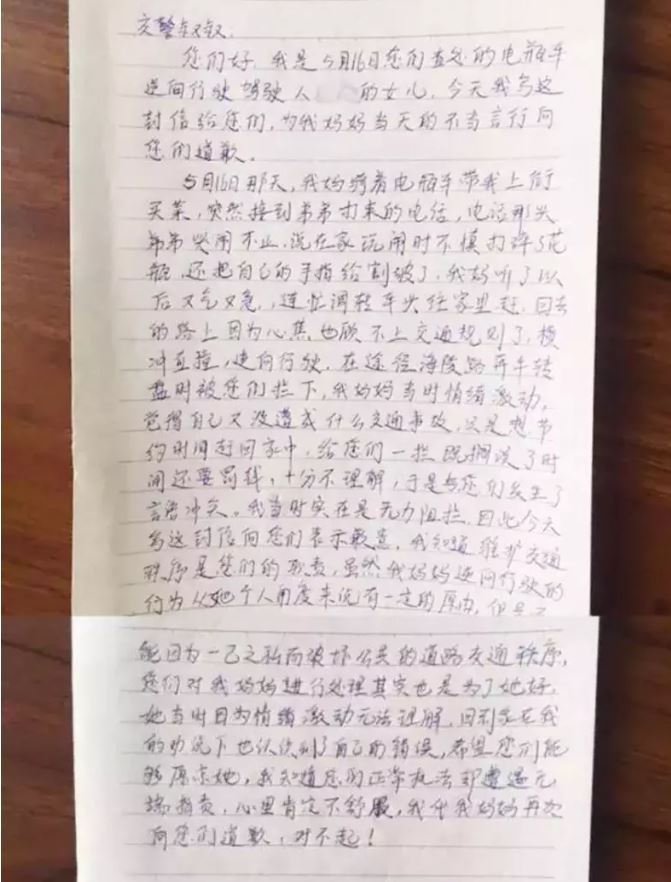 交警叔叔:
您们好，我是5月16日您们查处的电瓶车
逆向行驶驾驶人 的女儿，今天我写这
封信给您们，为我妈妈当天的不当言行向
您们道歉。
5月16日那天，我妈骑着电瓶车带我上街
买菜，突然接到弟弟打来的电话，电话那头
弟弟哭闹不止，说在家玩闹时不慎打碎了花
瓶，还把自己的手指给割破了，我妈听了以
后又气又急，连忙调转车头往家里赶，回去
的路上因为心焦也顾不上交通规则了，横
冲直撞，逆向行驶，在途径海陵路 转
盘时被您们拦下，我妈妈当时情绪激动，
觉得自己又没造成什么交通事故，只是想节
约时间赶回家中，给您们一拦既耽误了时
间还要罚钱，十分不理解，于是与您们发生了
言语冲突。我当时实在是无力阻拦，因此今天
写这封信向您们表示歉意，我知道维护交通
秩序是您们的职责，虽然我妈妈逆向行驶的
行为从她个人角度来说有一定的原因，但是不
能因为一己之私而破坏公共的道路交通秩序，
您们对我妈妈进行处理其实也是为了她好，
她当时因为情绪激动无法理解，回到家在我
的劝说下也认识到了自己的错误，希望您们能
够原谅她，我知道您们正常执法却遭遇无
端指责，心里肯定不舒服，我代我妈妈再次
向您们道歉，对不起！